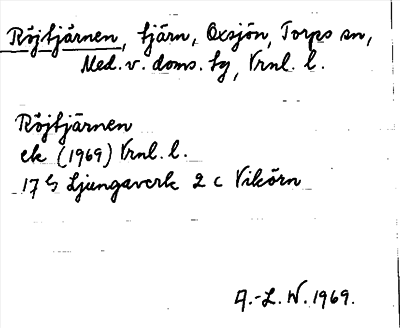 Röjtjärnen, tjärn, Oxsjön, Torps sn,
Med. v. doms. tg, Vrnl. l.
Röjtjärnen
ek (1969) Vrnl. l.
17 G Ljungaverk 2 c Vikörn
A.-L. W. 1969.